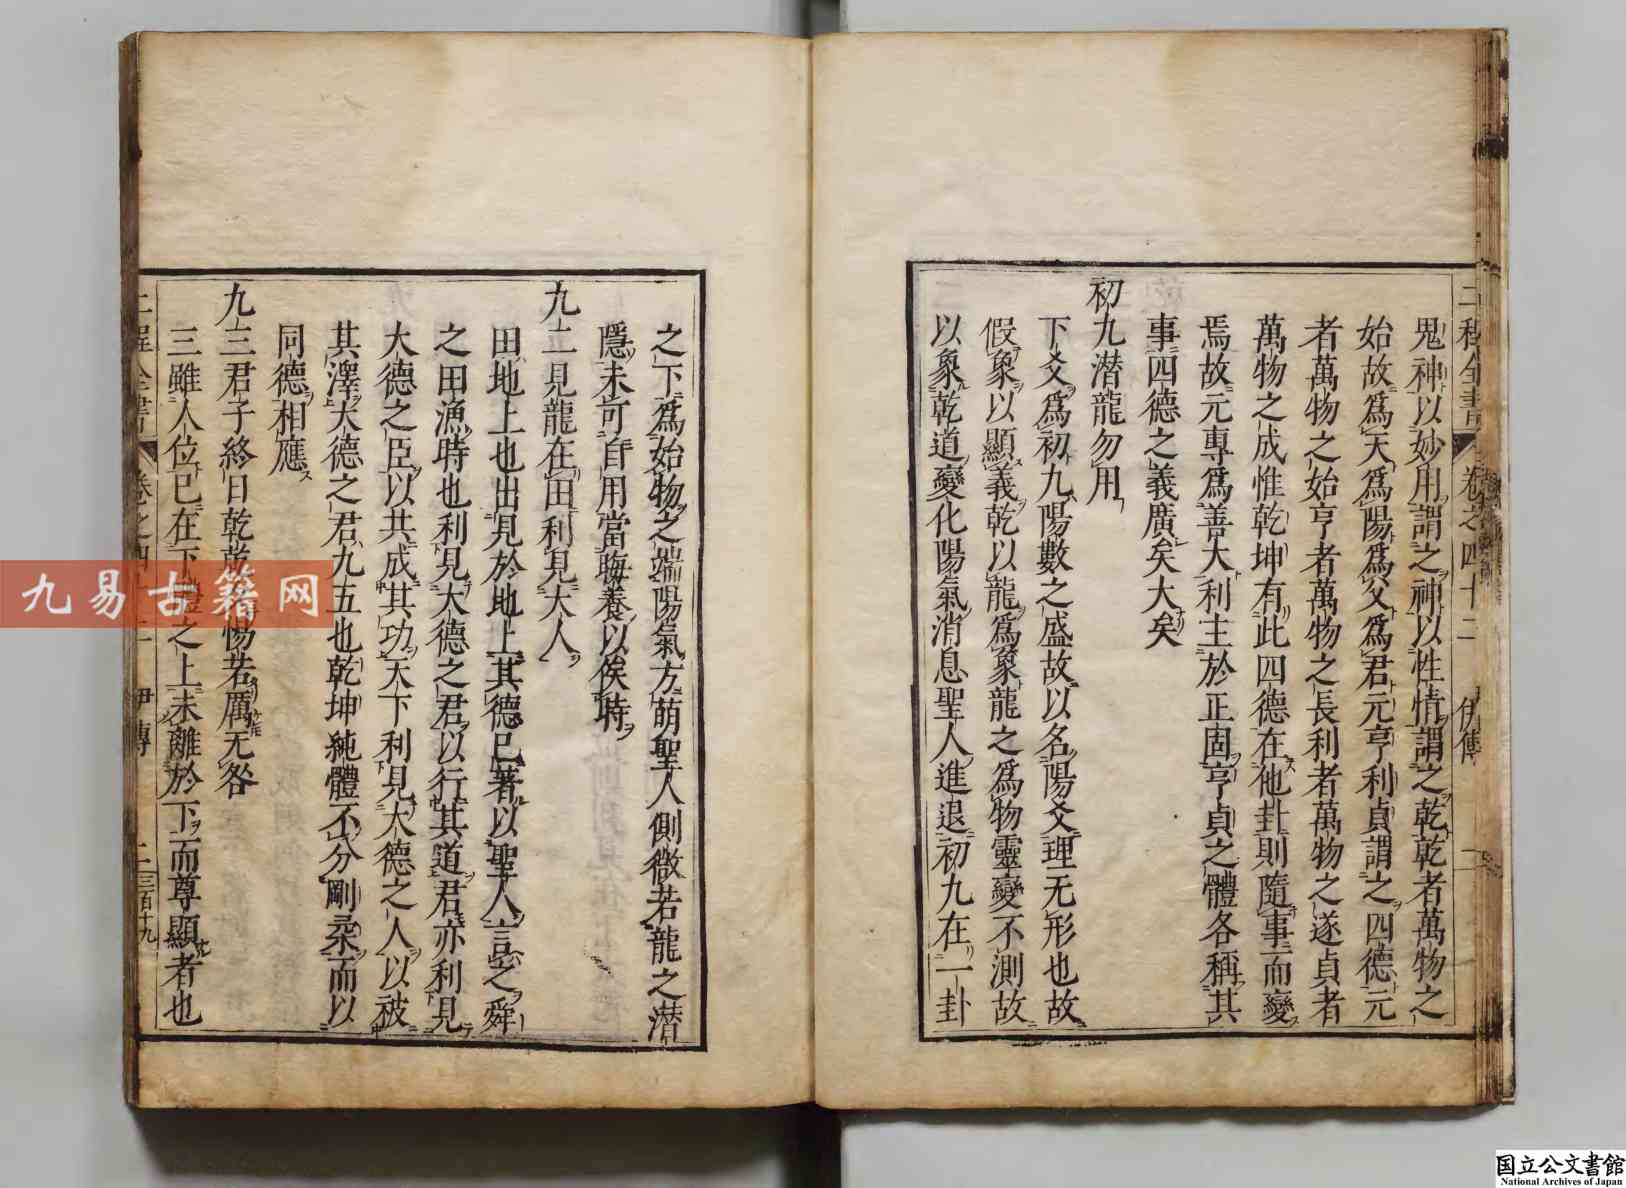 二程全書 卷之四十二 伊傳 二
鬼神以妙用謂之神以性情謂之乾乾者萬物之
始故爲天爲陽爲父爲君元亨利貞謂之四德元
者萬物之始亨者萬物之長利者萬物之遂貞者
萬物之成惟乾坤有此四德在他卦則隨事而變
焉故元專爲善大利主於正固亨貞之體各稱其
事四德之義廣矣大矣
初九潛龍勿用
下爻爲初九陽數之盛故以名陽爻理无形也故
假象以顯義乾以龍爲象龍之爲物靈變不測故
以象乾道變化陽氣消息聖人進退初九在一卦
之下爲始物之端陽氣方萌聖人側微若龍之潛
隱未可自用當晦養以俟時
九二見龍在田利見大人
田地上也出見於地上其德已著以聖人言之舜
之田漁時也利見大德之君以行其道君亦利見
大德之臣以共成其功天下利見大德之人以被
其澤大德之君九五也乾坤純體不分剛柔而以
同德相應
九三君子終日乾乾夕惕若厲无咎
三雖人位已在下體之上未離於下而尊顯者也
二程全書 卷之四十二 伊傳 二 三百十九
九易古籍网
国立公文書館
National Archives of Japan